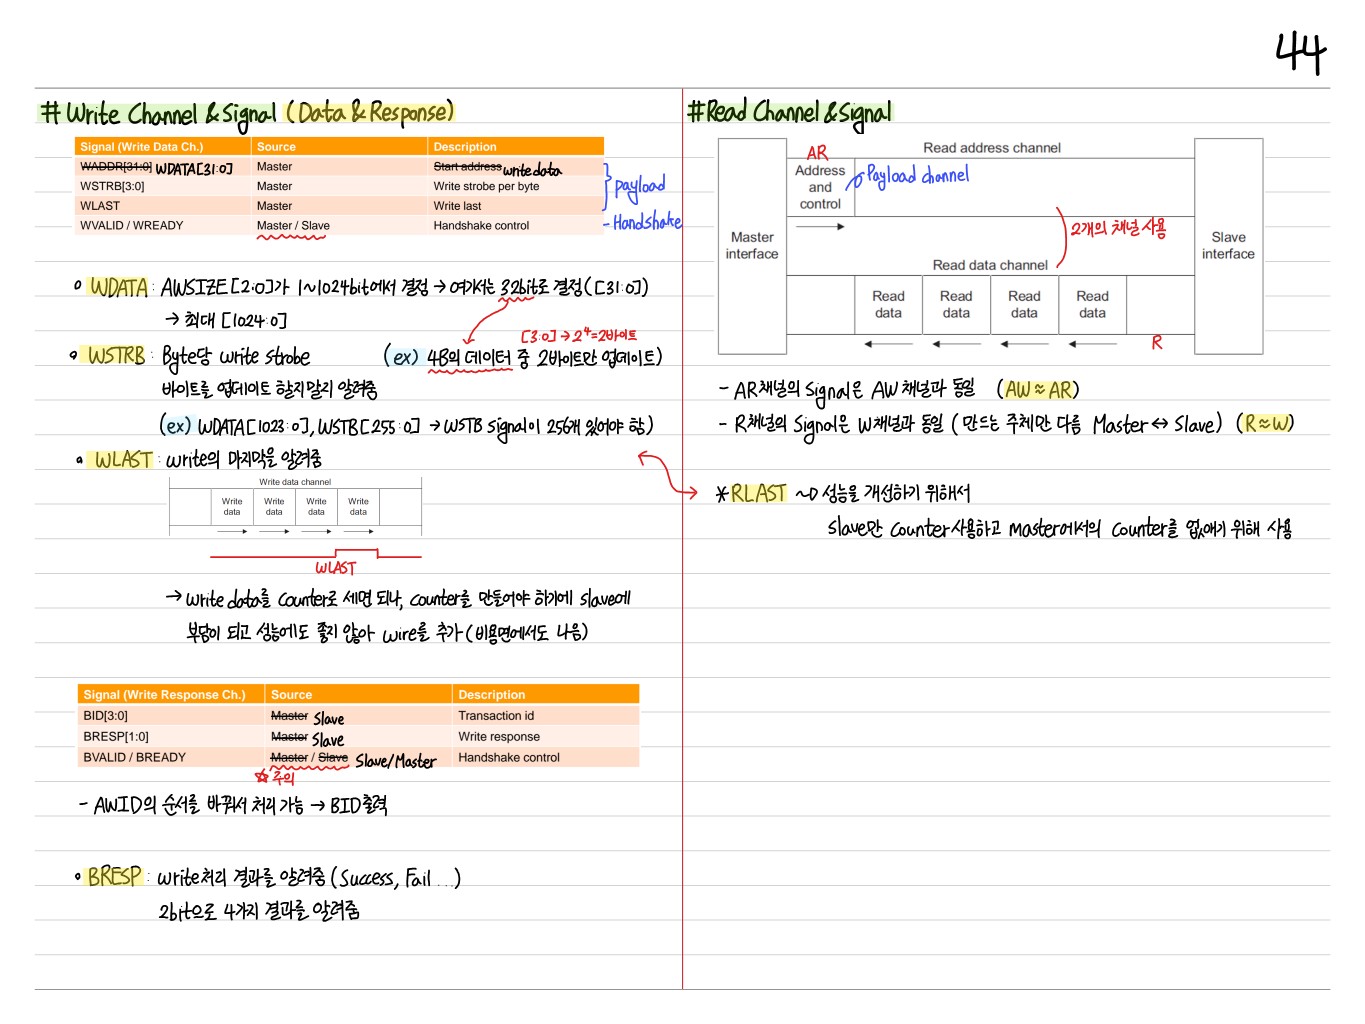 44
# Write Channel & Signal (Data & Response)
Signal (Write Data Ch.) Source Description
WADDR[31:0] WDATA[31:0] Master Start address write data
WSTRB[3:0] Master Write strobe per byte
WLAST Master Write last
WVALID / WREADY Master / Slave Handshake control
payload
- Handshake
◦ WDATA : AWSIZE[2:0]가 1~1024bit에서 결정 → 여기서는 32bit로 결정([31:0])
→ 최대 [1024:0]
[3:0] → 2⁴=2바이트
◦ WSTRB : Byte당 write strobe (ex) 4B의 데이터 중 2바이트만 업데이트)
바이트를 업데이트 할지말지 알려줌
(ex) WDATA[1023:0], WSTB[255:0] → WSTB signal이 256개 있어야 함)
◦ WLAST : write의 마지막을 알려줌
Write data channel
Write data Write data Write data Write data
WLAST
→ write data를 counter로 세면 되나, counter를 만들어야 하기에 slave에
부담이 되고 성능에도 좋지 않아 wire를 추가 (비용면에서도 나음)
Signal (Write Response Ch.) Source Description
BID[3:0] Master Slave Transaction id
BRESP[1:0] Master Slave Write response
BVALID / BREADY Master / Slave Slave/Master Handshake control
☆주의
- AWID의 순서를 바꿔서 처리 가능 → BID출력
◦ BRESP : write처리 결과를 알려줌 (Success, Fail ...)
2bit으로 4가지 결과를 알려줌
#Read Channel & Signal
Read address channel
AR
Address and control
Payload channel
2개의 채널 사용
Master interface
Slave interface
Read data channel
Read data Read data Read data Read data
R
- AR채널의 Signal은 AW 채널과 동일 (AW ≈ AR)
- R채널의 Signal은 W채널과 동일 (만드는 주체만 다름 Master ↔ Slave) (R ≈ W)
* RLAST ~> 성능을 개선하기 위해서
slave만 counter사용하고 master에서의 counter를 없애기 위해 사용